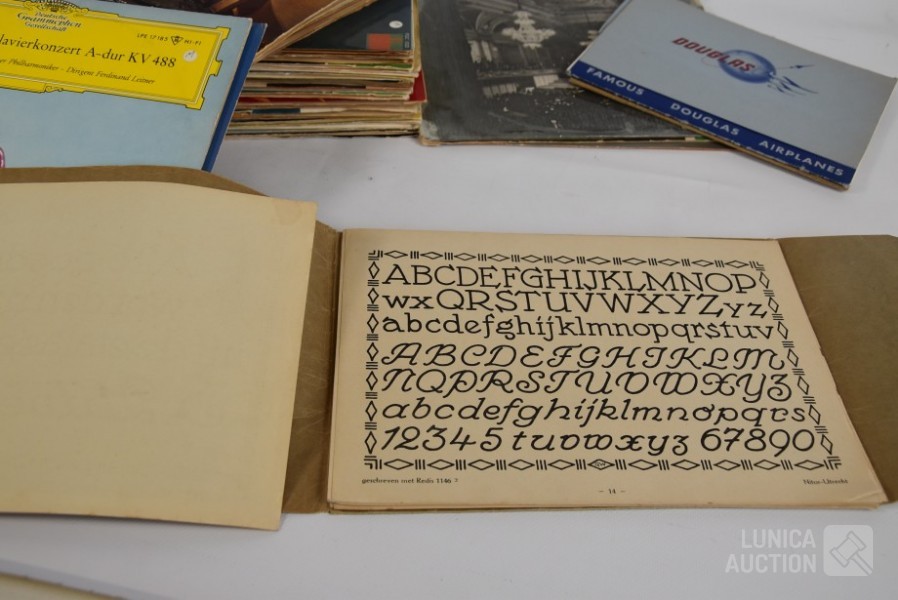 Deutsche
Grammophon
Gesellschaft
LPE 17 185 HI-FI
lavierkonzert A-dur KV 488
er Philharmoniker - Dirigent Ferdinand Leitner
DOUGLAS
FAMOUS DOUGLAS AIRPLANES
ABCDEFGHIJKLMNOP
wxQRSTUVWXYZyz
abcdefghijklmnopqrstuv
ABCDEFGHIJKLM
NOPQRSTUVWXYZ
abcdefghijklmnopqrs
12345 tuvwxyz 67890
geschreven met Redis 1146 ?
- 14 -
LUNICA
AUCTION